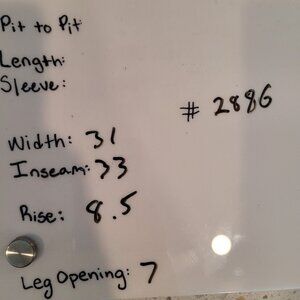 Pit to Pit
Length:
Sleeve:
# 2886
Width: 31
Inseam: 33
Rise: 8.5
Leg Opening: 7